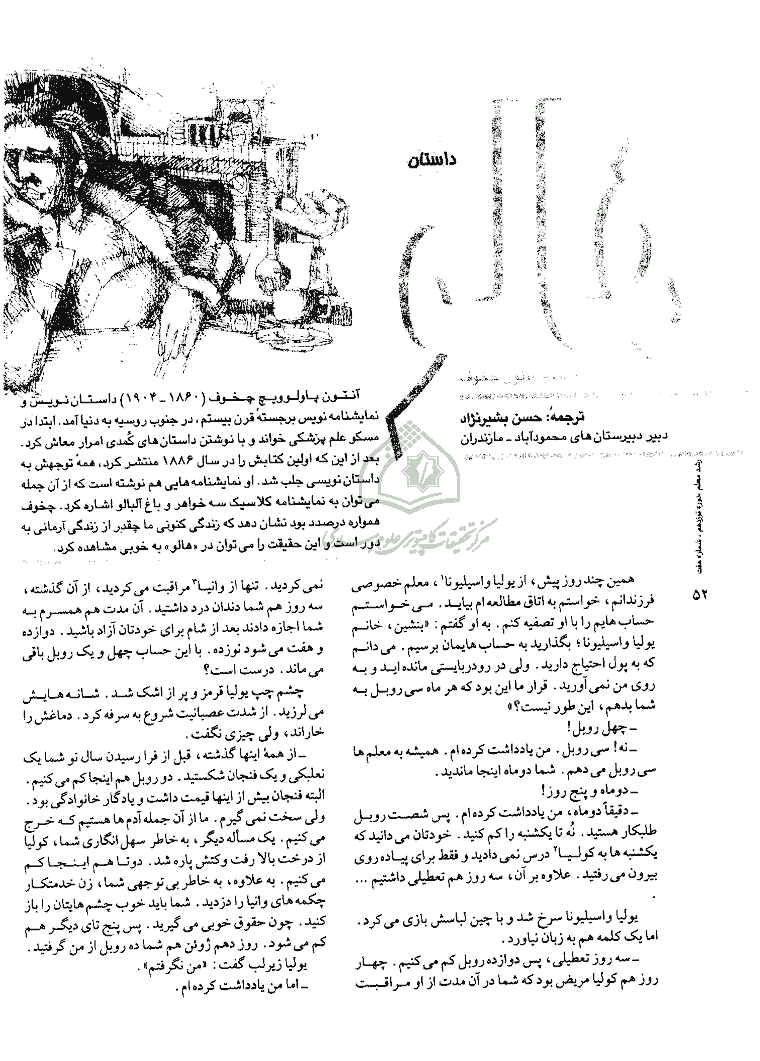 داستان
هالو
ترجمهٔ: حسن بشیرنژاد
دبیر دبیرستان های محمودآباد ـ مازندران
آنتون پاولوویچ چخوف (۱۸۶۰ ـ ۱۹۰۴) داستان نویس و
نمایشنامه نویس برجستهٔ قرن بیستم، در جنوب روسیه به دنیا آمد. ابتدا در
مسکو علم پزشکی خواند و با نوشتن داستان های کُمدی امرار معاش کرد.
بعد از این که اولین کتابش را در سال ۱۸۸۶ منتشر کرد، همهٔ توجهش به
داستان نویسی جلب شد. او نمایشنامه هایی هم نوشته است که از آن جمله
می توان به نمایشنامه کلاسیک سه خواهر و باغ آلبالو اشاره کرد. چخوف
همواره درصدد بود نشان دهد که زندگی کنونی ما چقدر از زندگی آرمانی به
دور است و این حقیقت را می توان در «هالو» به خوبی مشاهده کرد.
همین چند روز پیش، از یولیا واسیلیونا۱، معلم خصوصی
فرزندانم، خواستم به اتاق مطالعه ام بیاید. می خواستم
حساب هایم را با او تصفیه کنم. به او گفتم: «بنشین، خانم
یولیا واسیلیونا؛ بگذارید به حساب هایمان برسیم. می دانم
که به پول احتیاج دارید. ولی در رودربایستی مانده اید و به
روی من نمی آورید. قرار ما این بود که هر ماه سی روبل به
شما بدهم، این طور نیست؟»
ـ چهل روبل!
ـ نه! سی روبل. من یادداشت کرده ام. همیشه به معلم ها
سی روبل می دهم. شما دو ماه اینجا ماندید.
ـ دو ماه و پنج روز!
ـ دقیقاً دو ماه، من یادداشت کرده ام. پس شصت روبل
طلبکار هستید. نُه تا یکشنبه را کم کنید. خودتان می دانید که
یکشنبه ها به کولیا۲ درس نمی دادید و فقط برای پیاده روی
بیرون می رفتید. علاوه بر آن، سه روز هم تعطیلی داشتیم ...
.
یولیا واسیلیونا سرخ شد و با چین لباسش بازی می کرد.
اما یک کلمه هم به زبان نیاورد.
ـ سه روز تعطیلی، پس دوازده روبل کم می کنیم. چهار
روز هم کولیا مریض بود که شما در آن مدت از او مراقبت
نمی کردید. تنها از وانیا۳ مراقبت می کردید، از آن گذشته،
سه روز هم شما دندان درد داشتید. آن مدت هم همسرم به
شما اجازه دادند بعد از شام برای خودتان آزاد باشید. دوازده
و هفت می شود نوزده. با این حساب چهل و یک روبل باقی
می ماند. درست است؟
چشم چپ یولیا قرمز و پر از اشک شد. شانه هایش
می لرزید. از شدت عصبانیت شروع به سرفه کرد. دماغش را
خاراند، ولی چیزی نگفت.
ـ از همهٔ اینها گذشته، قبل از فرا رسیدن سال نو شما یک
نعلبکی و یک فنجان شکستید. دو روبل هم اینجا کم می کنیم.
البته فنجان بیش از اینها قیمت داشت و یادگار خانوادگی بود.
ولی سخت نمی گیرم. ما از آن جمله آدم ها هستیم که خرج
می کنیم. یک مسأله دیگر، به خاطر سهل انگاری شما، کولیا
از درخت بالا رفت و کتش پاره شد. دو تا هم اینجا کم
می کنیم. به علاوه، به خاطر بی توجهی شما، زن خدمتکار
چکمه های وانیا را دزدید. شما باید خوب چشم هایتان را باز
کنید. چون حقوق خوبی می گیرید. پس پنج تای دیگر هم
کم می شود. روز دهم ژوئن هم شما ده روبل از من گرفتید.
یولیا زیرلب گفت: «من نگرفتم».
ـ اما من یادداشت کرده ام.
رشد معلم، دوره نوزدهم، شماره هفت
۵۲